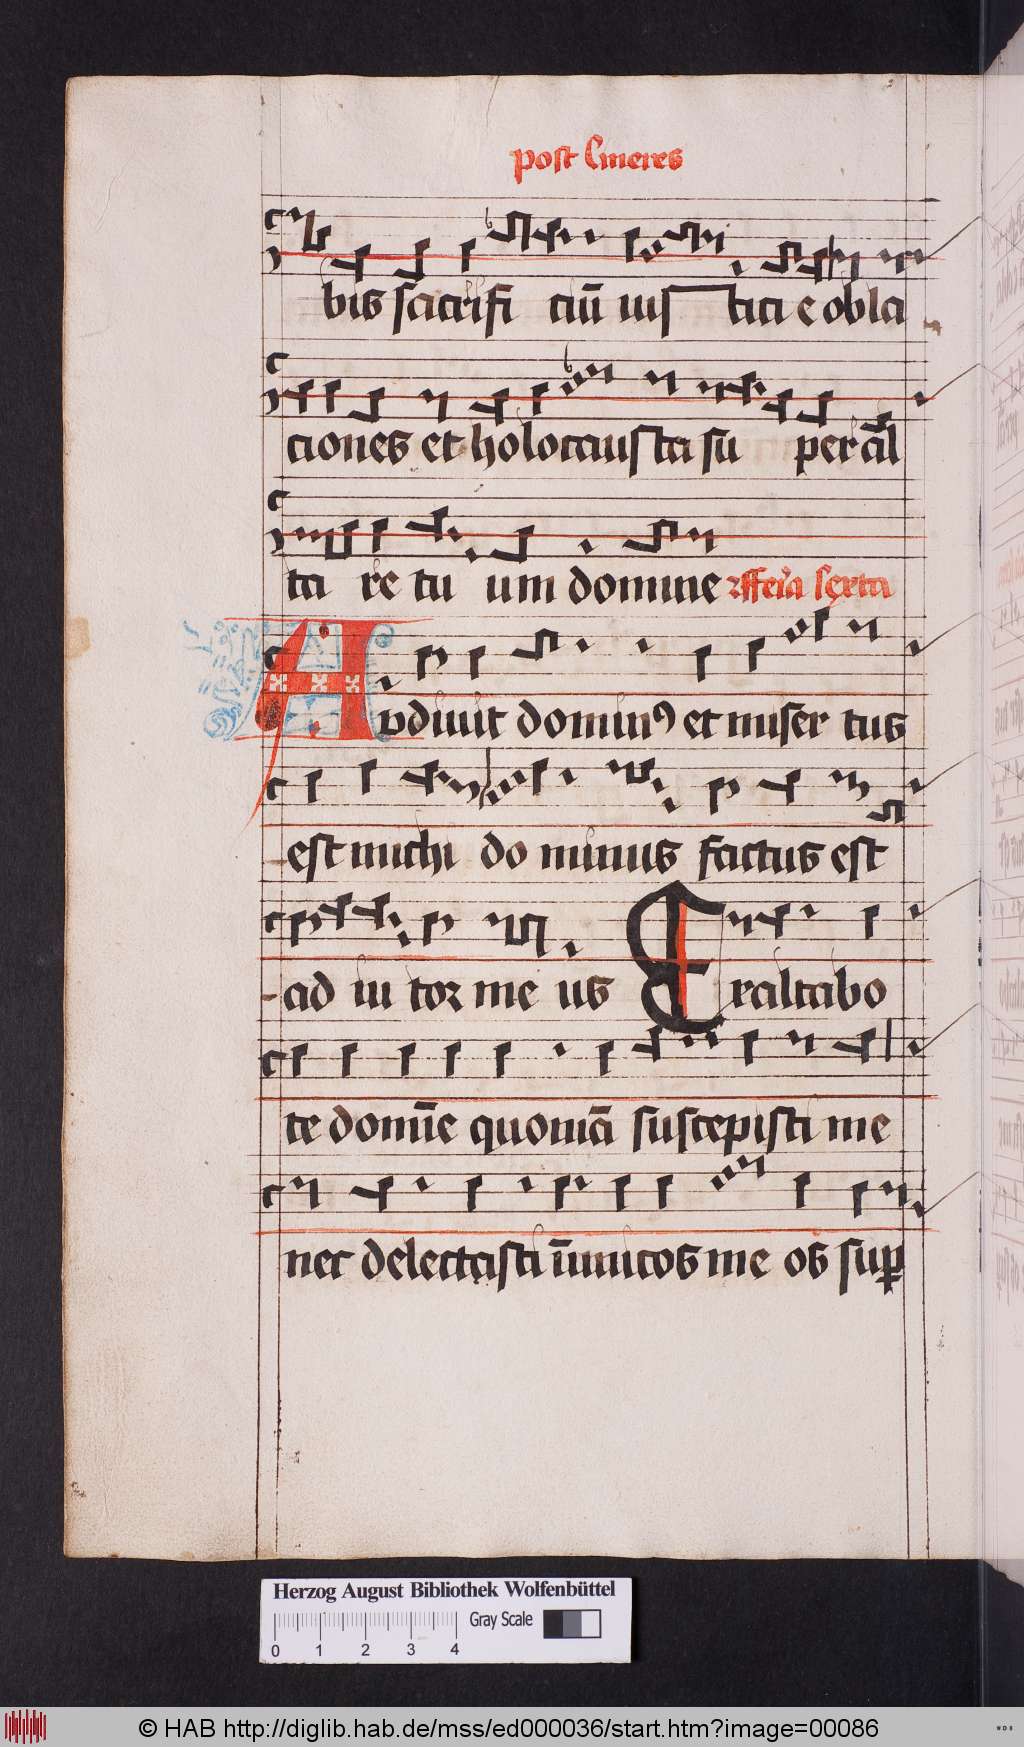 post Cineres
bis sacrifi ciū ius tici e obla
ciones et holocausta su per al
ta re tu um domine feria sexta
Audiuit dominꝰ et miser tus
est michi do minus factus est
ad iu tor me us Exaltabo
te domīe quoniā suscepisti me
nec delectasti īimicos me os suꝑ
Herzog August Bibliothek Wolfenbüttel
0 1 2 3 4 Gray Scale
© HAB http://diglib.hab.de/mss/ed000036/start.htm?image=00086